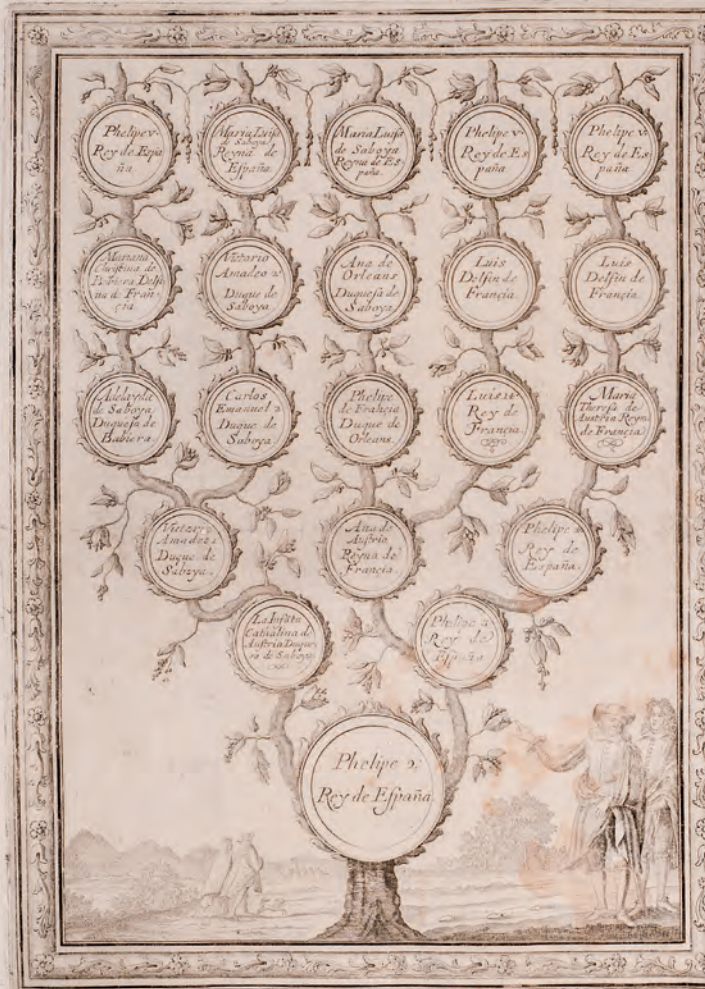 Phelipe v.
Rey de Espa
ña
Maria Luisa
de Saboya
Reyna de
España.
Maria Luisa
de Saboya
Reyna de Es-
paña.
Phelipe v.
Rey de Es
paña
Phelipe v.
Rey de Es
paña
Mariana
Christina de
Babiera Delfi
na de Fran-
çia
Victorio
Amadeo 2º
Duque de
Saboya.
Ana de
Orleans
Duquesa de
Saboya.
Luis
Delfin de
Françia.
Luis
Delfin de
Françia.
Adelayda
de Saboya
Duquesa de
Babiera.
Carlos
Emanuel 2
Duque de
Saboya
Phelipe
de Françia
Duque de
Orleans.
Luis 14
Rey de
Françia.
Maria
Theresa de
Austria Reyna
de Françia
Victorio
Amadeo
Duque de
Saboya.
Ana de
Austria
Reyna de
Françia.
Phelipe
Rey de
España.
La Infata
Cathalina de
Austria Duque
sa de Saboya
Phelipe 3
Rey de
España
Phelipe 2;
Rey de España.